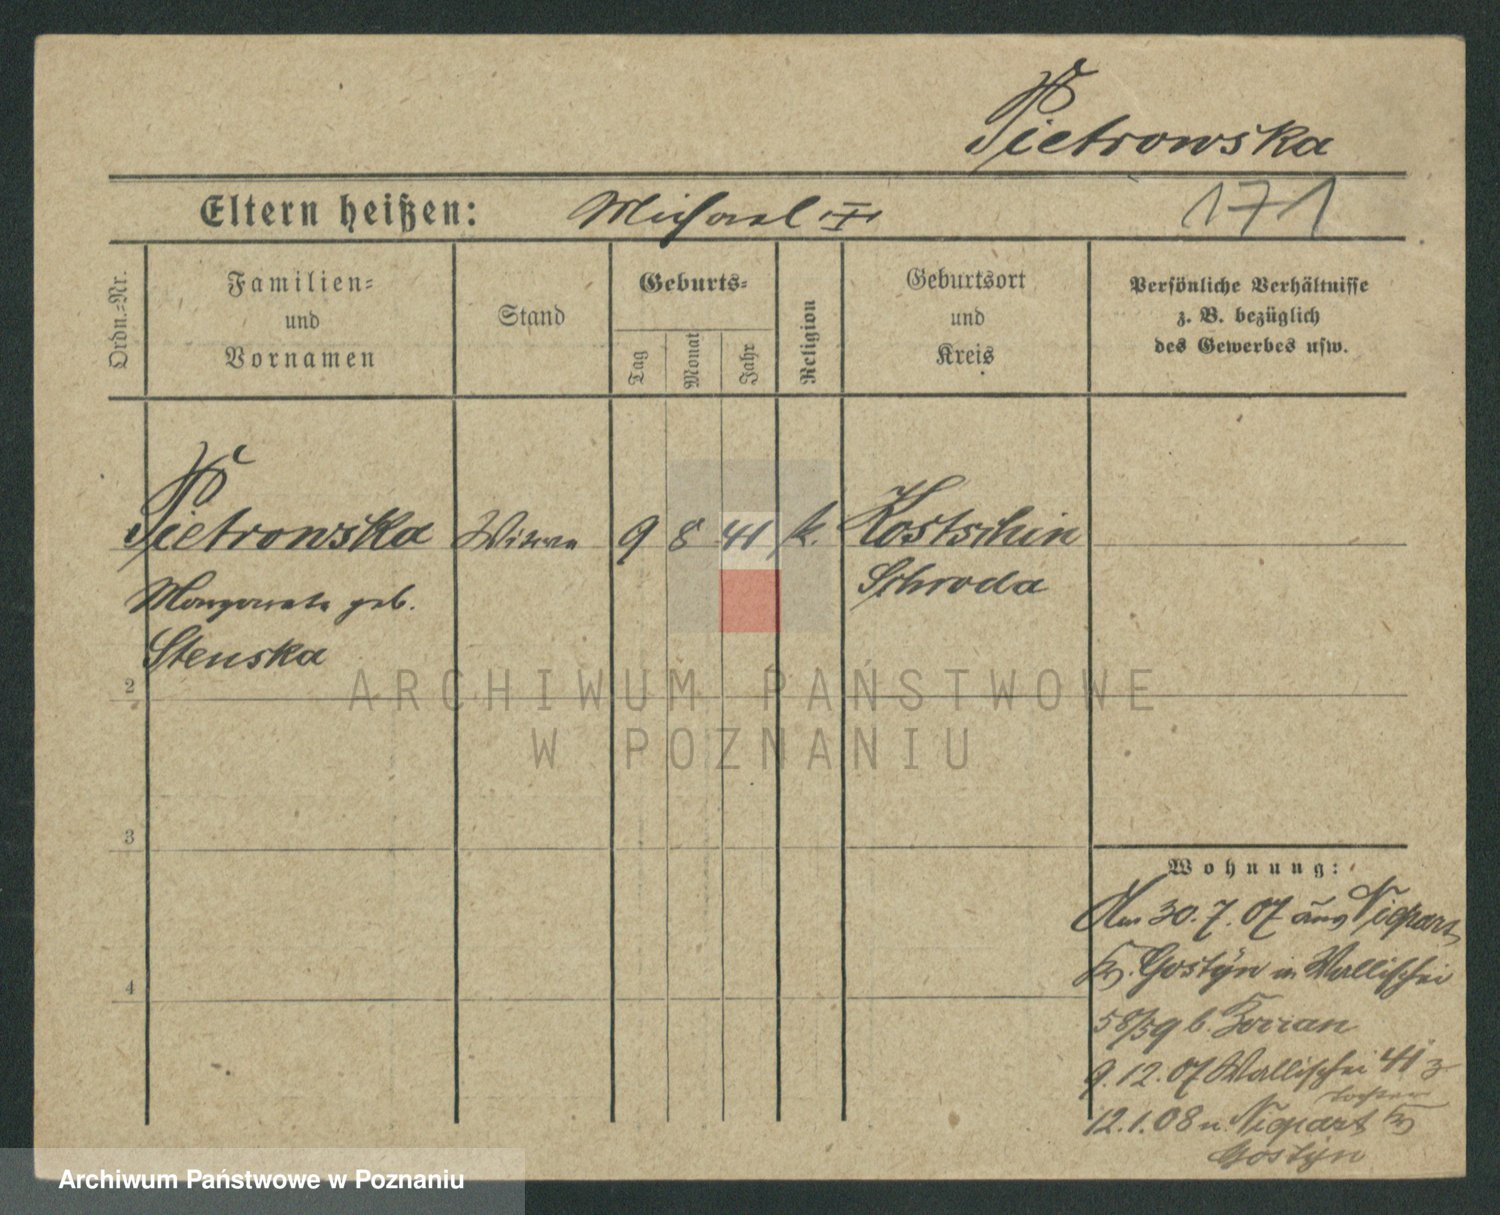 Pietrowska
Eltern heißen: Michael I 171
Ordn.=Nr.
Familien=
und
Vornamen
Stand
Geburts=
Tag
Monat
Jahr
Religion
Geburtsort
und
Kreis
Persönliche Verhältnisse
z. B. bezüglich
des Gewerbes usw.
Pietrowska Witwe 9 8 41 k. Kostschin
Margareta geb. Schroda
Stenska
2
ARCHIWUM PAŃSTWOWE
W POZNANIU
3
4
Wohnung:
Am 30.7.07 aus
Gostyn in Wallischei
58/59 b.
9.12.07 Wallischei 41 z
Tochter
12.1.08 n.
Gostyn
Archiwum Państwowe w Poznaniu